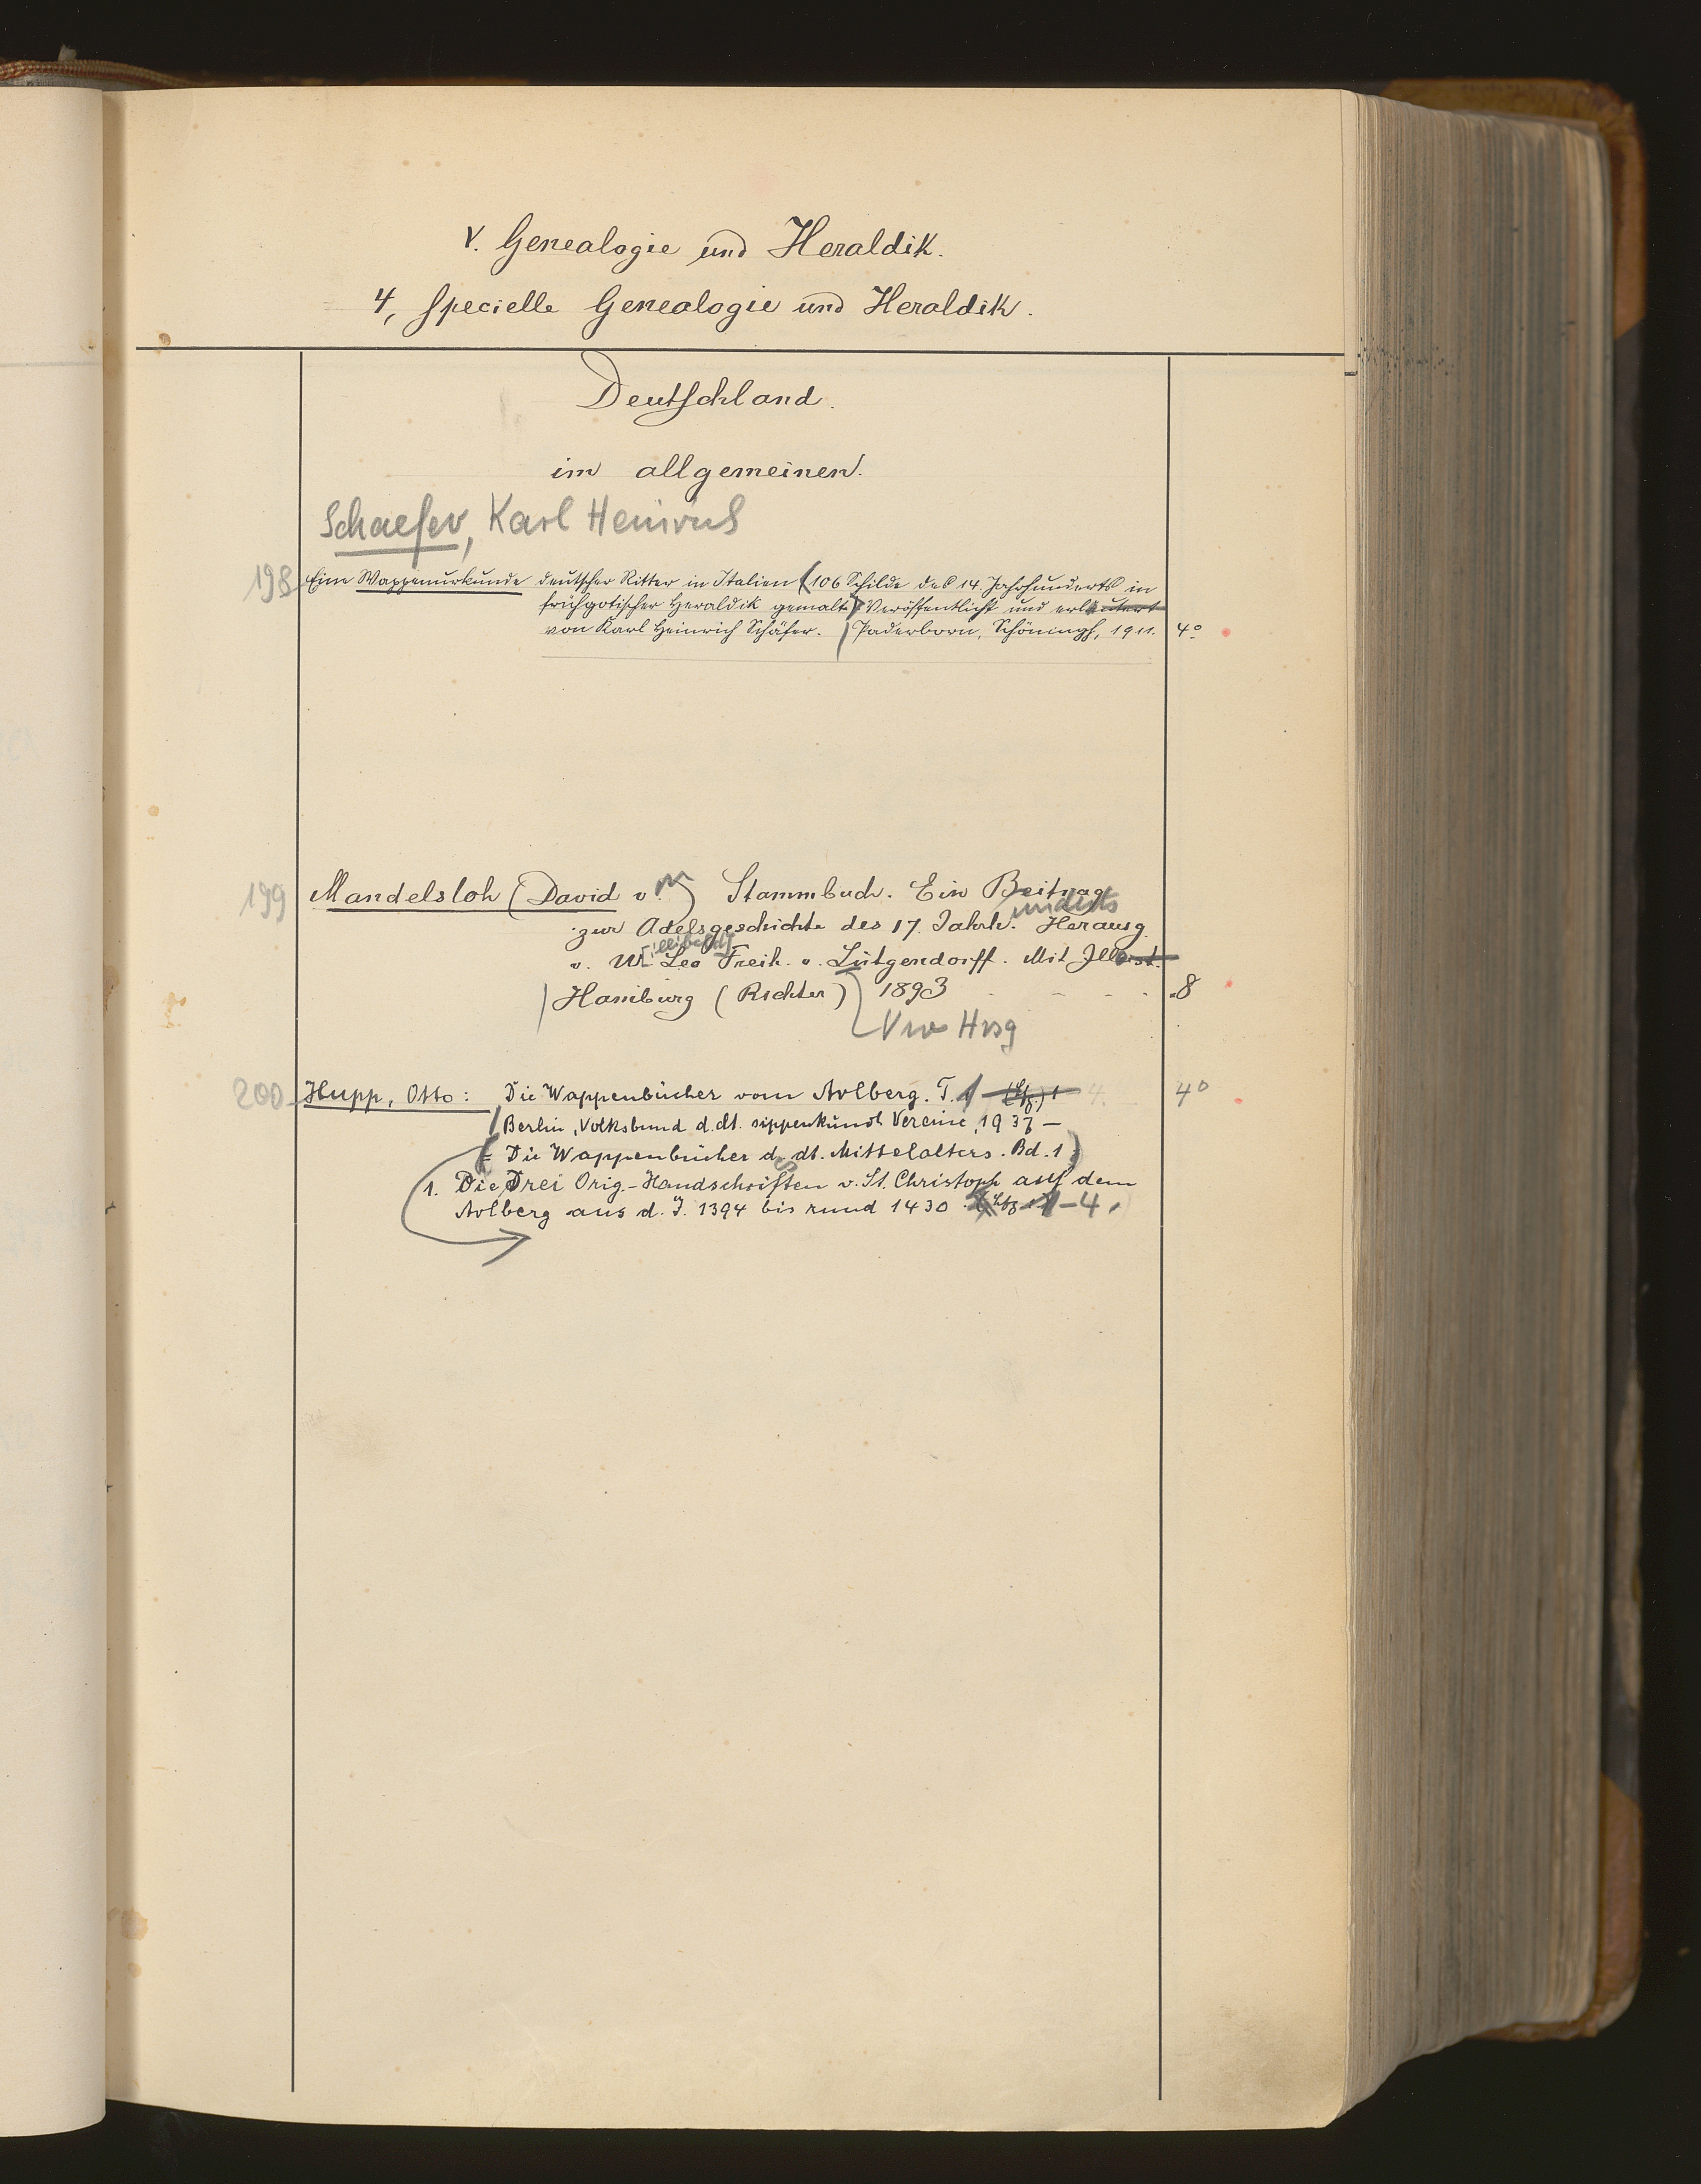 V. Genealogie und Heraldik.
4, Specielle Genealogie und Heraldik.
Deutschland.
im allgemeinen.
Schaefer, Karl Heinrich
198 Eine Wappenurkunde deutscher Ritter in Italien (106 Schilde des 14. Jahrhunderts in
frühgotischer Heraldik gemalt) Veröffentlicht und erläutert
von Karl Heinrich Schäfer. Paderborn, Schöningh, 1911. 4°
199 Mandelsloh (David v.) Stammbuch. Ein Beitrag
underts
zur Adelsgeschichte des 17. Jahrh. Herausg.
illibald
v. W. Leo Freih. v. Lütgendorff. Mit Illust.
Hamburg (Richter) 1893 8
Vw Hrsg
200 Hupp, Otto: Die Wappenbücher vom Arlberg. T. 1 (Lfg.) 1 4. 4°
Berlin, Volksbund d. dt. sippenkundl. Vereine, 1937 –
(= Die Wappenbücher d. dt. Mittelalters. Bd. 1)
1. Die Drei Orig.-Handschriften v. St. Christoph auf dem
Arlberg aus d. J. 1394 bis rund 1430. (Lfg. 1–4.)